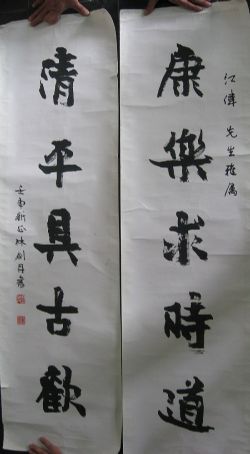 江偉先生雅屬
康樂求時道
清平具古歡
壬申新正林剑丹書